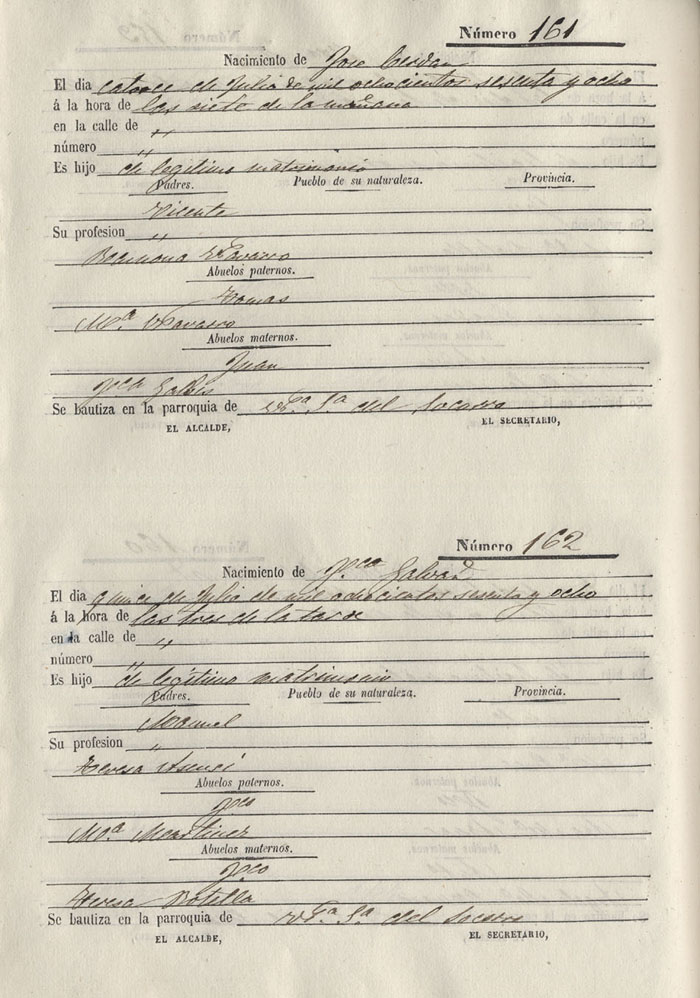 Número 161
Nacimiento de Jose Cerdan
El dia catorce de Julio de mil ochocientos sesenta y ocho
á la hora de las siete de la mañana
en la calle de "
número "
Es hijo de legitimo matrimonio
Padres. Pueblo de su naturaleza. Provincia.
Vicente
Su profesion "
Ramona Navarro
Abuelos paternos.
Tomas
Mª Navarro
Abuelos maternos.
Juan
Fca Galbis
Se bautiza en la parroquia de Ntª Sª del Socorro
EL ALCALDE, EL SECRETARIO,
Número 162
Nacimiento de Fca
El dia quince de Julio de mil ochocientos sesenta y ocho
á la hora de las tres de la tarde
en la calle de "
número "
Es hijo de legitimo matrimonio
Padres. Pueblo de su naturaleza. Provincia.
Manuel
Su profesion "
Teresa Asenci
Abuelos paternos.
Fco
Mª Martinez
Abuelos maternos.
Fco
Teresa Botella
Se bautiza en la parroquia de Ntª Sª del Socorro
EL ALCALDE, EL SECRETARIO,